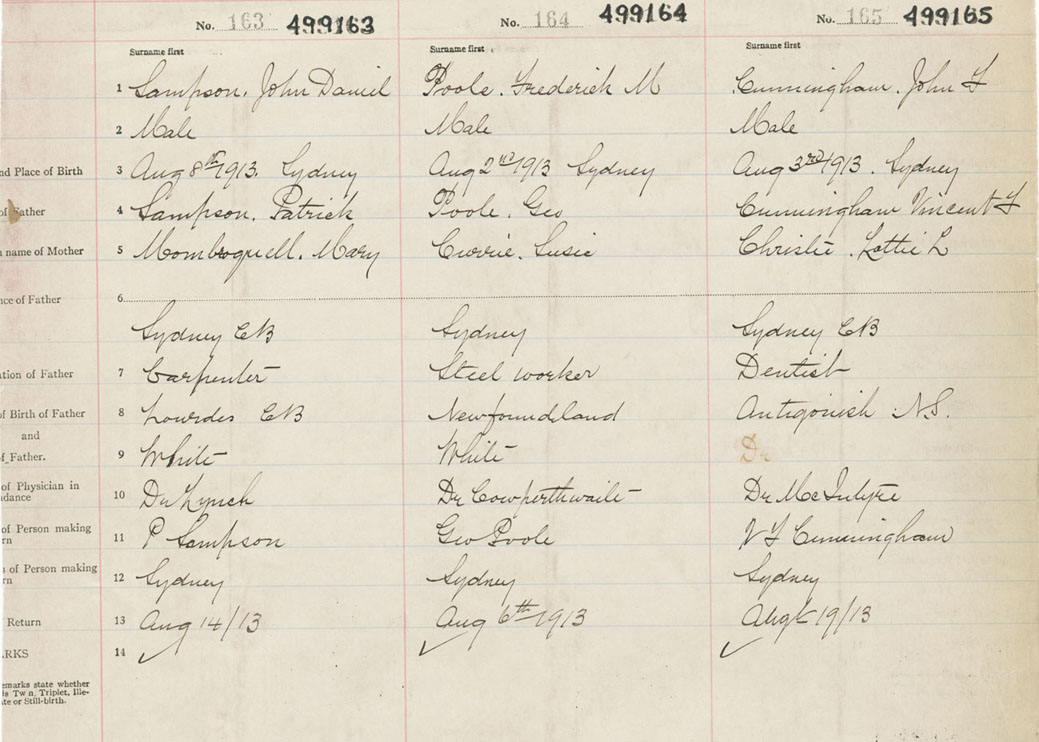 No. 163 499163 No. 164 499164 No. 165 499165
Surname first Surname first Surname first
1 Sampson. John Daniel Poole. Frederick M Cunningham. John F
2 Male Male Male
nd Place of Birth 3 Aug 8th 1913. Sydney Aug 2nd 1913 Sydney Aug 3rd 1913. Sydney
of Father 4 Sampson. Patrick Poole. Geo Cunningham Vincent F
name of Mother 5 Mombroquell. Mary Currie. Susie Christie. Lottie L
nce of Father 6
Sydney CB Sydney Sydney CB
ation of Father 7 Carpenter Steel worker Dentist
of Birth of Father 8 Lourdes CB Newfoundland Antigonish N.S.
and
of Father. 9 White White Dr
of Physician in
dance 10 Dr Lynch Dr Cowperthwaite Dr McIntyre
of Person making
rn 11 P Sampson Geo Poole V F Cunningham
s of Person making
rn 12 Sydney Sydney Sydney
Return 13 Aug 14/13 Aug 6th 1913 Aug 19/13
ARKS 14
emarks state whether
is Twn, Triplet, Ille-
te or Still-birth.